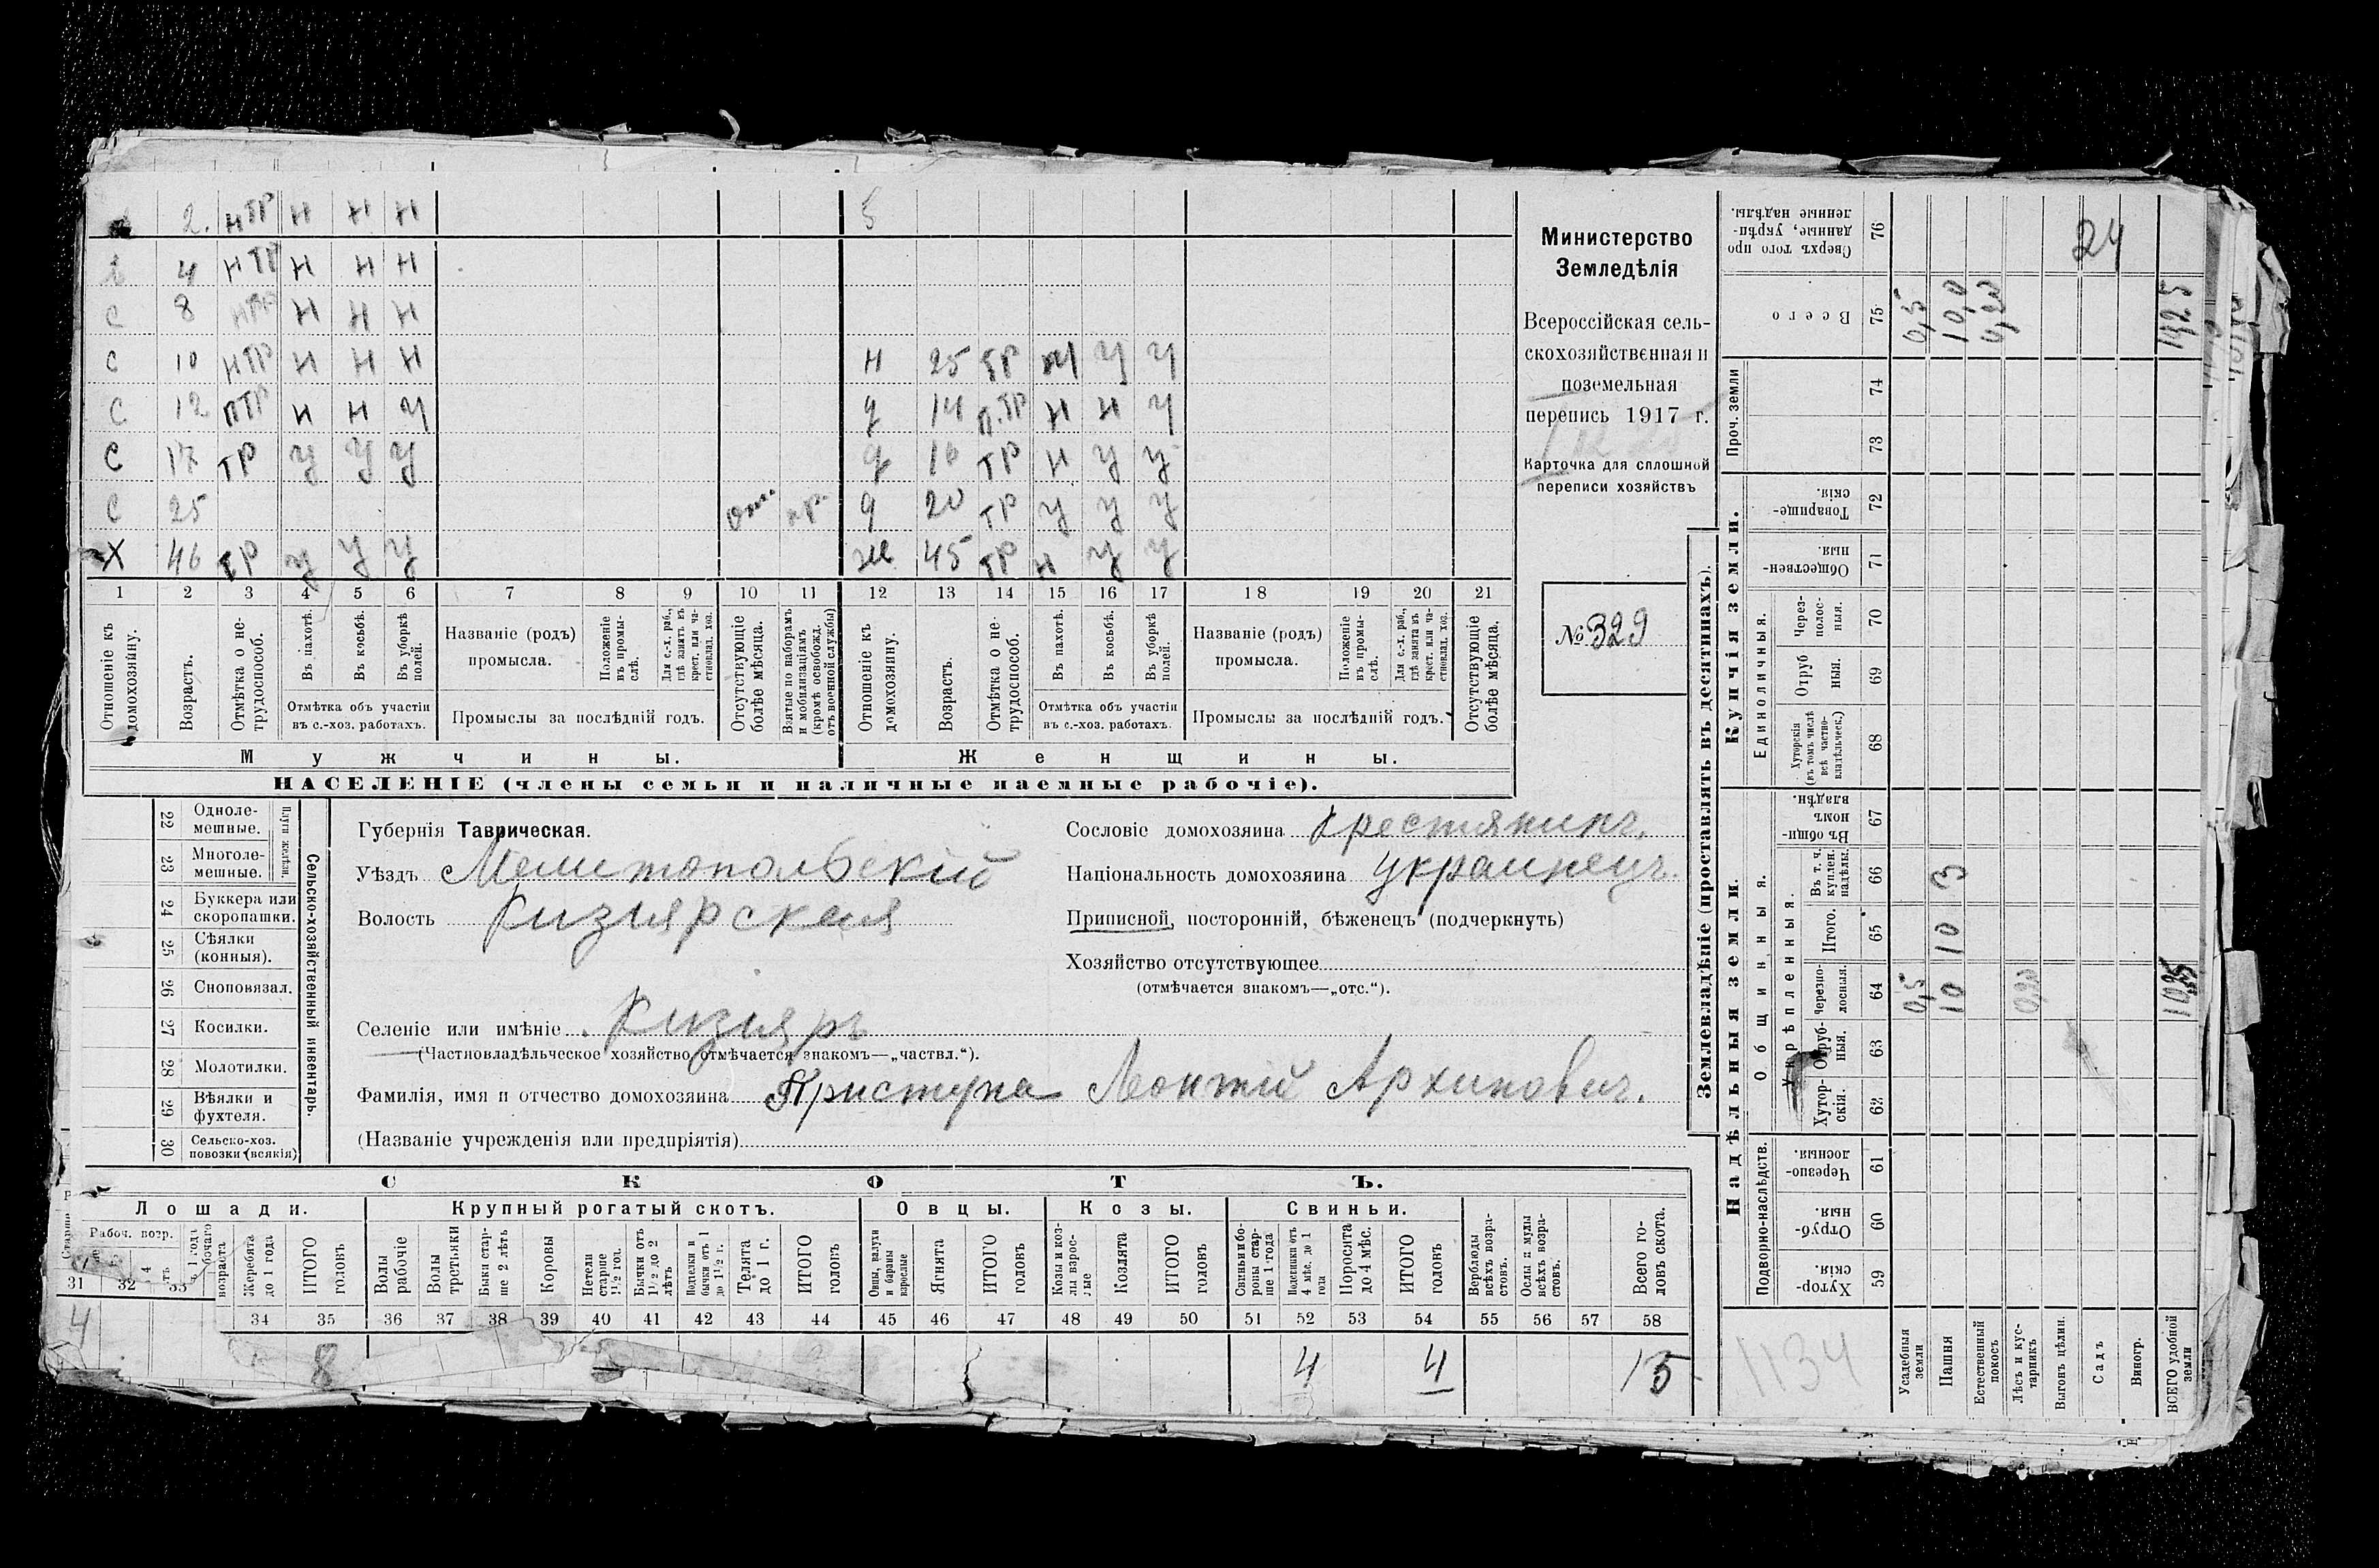 2. нТР н н н 5
4 нТР н н н
с 8 н н н
с 10 нТР н н н н 25 ТР у у
с 12 пТР н н у д 14 п.ТР н н у
с 17 ТР у у у д 16 ТР н у у
с 25 д 20 ТР у у у
Х 46 ТР у у у ж 45 ТР н у у
1 2 3 4 5 6 7 8 9 10 11 12 13 14 15 16 17 18 19 20 21
Отношеніе къ домохозяину.
Возрастъ.
Отмѣтка о нетрудоспособ.
Въ пахотѣ.
Въ косьбѣ.
Въ уборкѣ полей.
Отмѣтка объ участіи
въ с.-хоз. работахъ.
Названіе (родъ)
промысла.
Положеніе въ промыслѣ.
Для с.-х. раб., гдѣ занятъ въ крест. или частновлад. хоз.
Промыслы за послѣдній годъ.
Отсутствующіе болѣе мѣсяца.
Взятые по наборамъ и мобилизаціямъ (кромѣ освобожд. отъ военной службы)
Отношеніе къ домохозяину.
Возрастъ.
Отмѣтка о нетрудоспособ.
Въ пахотѣ.
Въ косьбѣ.
Въ уборкѣ полей.
Отмѣтка объ участіи
въ с.-хоз. работахъ.
Названіе (родъ)
промысла.
Положеніе въ промыслѣ.
Для с.-х. раб., гдѣ занята въ крест. или частновлад. хоз.
Промыслы за послѣдній годъ.
Отсутствующіе болѣе мѣсяца.
Мужчины. Женщины.
НАСЕЛЕНІЕ (члены семьи и наличные наемные рабочіе).
Министерство
Земледѣлія
Всероссійская сель-
скохозяйственная и
поземельная
перепись 1917 г.
Карточка для сплошной
переписи хозяйствъ
№ 329
22 Одноле-
мешные.
23 Многоле-
мешные.
Плуги желѣзн.
24 Буккера или
скоропашки.
25 Сѣялки
(конныя).
26 Сноповязал.
27 Косилки.
28 Молотилки.
29 Вѣялки и
фухтеля.
30 Сельско-хоз.
повозки (всякія)
Сельско-хозяйственный инвентарь.
Губернія Таврическая.
Уѣздъ Мелитопольскій
Волость Кизиярская
Селеніе или имѣніе Кизияръ
(Частновладѣльческое хозяйство отмѣчается знакомъ—„частвл.“).
Фамилія, имя и отчество домохозяина Приступа Леонтій Архипович.
(Названіе учрежденія или предпріятія)
Сословіе домохозяина Крестянинъ.
Національность домохозяина украинецъ.
Приписной, посторонній, бѣженецъ (подчеркнуть)
Хозяйство отсутствующее
(отмѣчается знакомъ—„отс.“).
СКОТЪ.
Лошади. Крупный рогатый скотъ. Овцы. Козы. Свиньи.
Рабоч. возр.
возраста
Жеребята до 1 года
ИТОГО головъ
Волы рабочіе
Волы третьяки
Быки старше 2 лѣтъ
Коровы
Нетели старше 1½ год.
Бычки отъ 1½ до 2 лѣтъ
Подтелки и бычки отъ 1 до 1½ г.
Телята до 1 г.
ИТОГО головъ
Овцы, валухи и бараны взрослые
Ягнята
ИТОГО головъ
Козы и козлы взрослые
Козлята
ИТОГО головъ
Свиньи и боровы старше 1 года
Подсвинки отъ 4 мѣс. до 1 года
Поросята до 4 мѣс.
ИТОГО головъ
Верблюды всѣхъ возрастовъ.
Ослы и мулы всѣхъ возрастовъ.
Всего головъ скота.
31 32 33 34 35 36 37 38 39 40 41 42 43 44 45 46 47 48 49 50 51 52 53 54 55 56 57 58
4 8 4 4 15
Землевладѣніе (проставлять въ десятинахъ).
Надѣльныя земли. Купчія земли. Проч. земли
Подворно-наслѣдств. Общинныя. Единоличныя.
Укрѣпленныя.
Хуторскія 59
Отрубныя. 60
Черезполосныя. 61
Хуторскія. 62
Отрубныя. 63
Черезполосныя. 64
Итого. 65
Въ т. ч. куплен. надѣлы. 66
Въ общинномъ владѣн. 67
Хуторскія (въ томъ числѣ всѣ частновладѣльческ.) 68
Отрубныя. 69
Черезполосныя. 70
Общественныя 71
Товарищескія. 72
73
74
Всего 75
Сверхъ того проданные, укрѣпленные надѣлы. 76
Усадебныя земли 0,5 0,5
Пашня 10 10 3 10,0
Естественный покосъ
Лѣсъ и кустарникъ
Выгонъ цѣлин.
Садъ 24
Виногр.
ВСЕГО удобной земли
1134